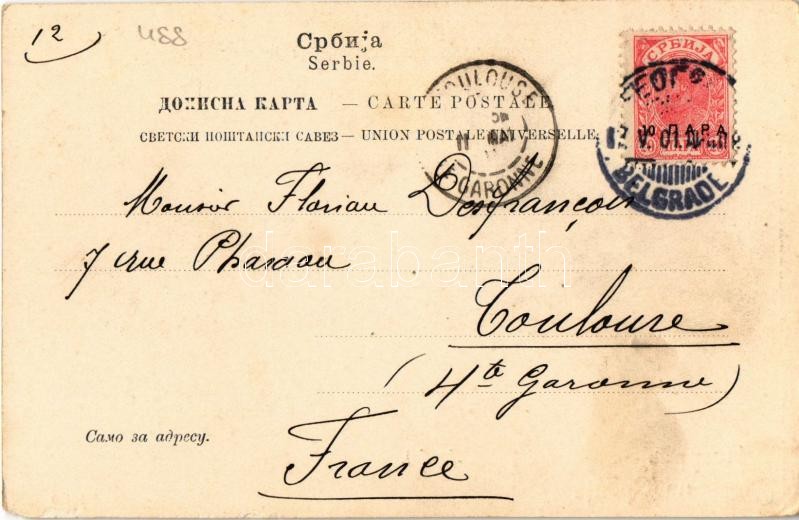 12
488
Србија
Serbie.
ДОПИСНА КАРТА — CARTE POSTALE
СВЕТСКИ ПОШТАНСКИ САВЕЗ — UNION POSTALE UNIVERSELLE
СРБИЈА
10 ПАРА
BELGRADE
TOULOUSE
GARONNE
Monsier Florian Desfrançois
7 rue Pharaon
Toulouse
(Hte Garonne)
France
Само за адресу.
darabanth